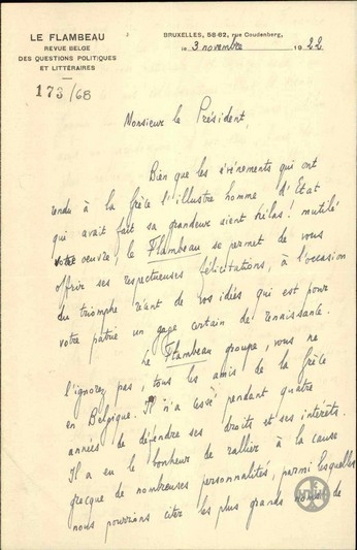 LE FLAMBEAU
REVUE BELGE
DES QUESTIONS POLITIQUES
ET LITTÉRAIRES
173/68
BRUXELLES, 58-62, rue Coudenberg,
le 3 novembre 1922
Monsieur le Président,
Bien que les événements qui ont
rendu à la Grèce l'illustre homme d'Etat
qui avait fait sa grandeur aient hélas! mutilé
votre oeuvre, le Flambeau se permet de vous
offrir ses respectueuses félicitations, à l'occasion
du triomphe de vos idées qui est pour
votre patrie un gage certain de renaissance.
Le Flambeau groupe, vous ne
l'ignorez pas, tous les amis de la Grèce
en Belgique. Il n'a cessé pendant quatre
années de défendre ses droits et ses intérêts.
Il a eu le bonheur de rallier à la cause
grecque de nombreuses personnalités, parmi lesquelles
nous pourrions citer les plus grands noms de